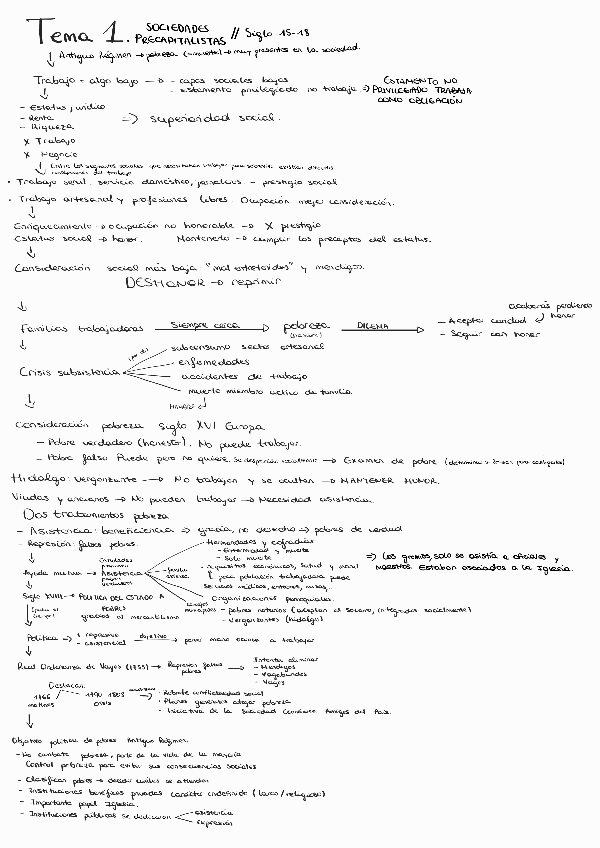 Tema 1. SOCIEDADES PRECAPITALISTAS // Siglo 15-18
↓ Antiguo Régimen → pobreza → muy presentes en la sociedad.
Trabajo - algo bajo → - capas sociales bajas
- estamento privilegiado no trabaja → ESTAMENTO NO PRIVILEGIADO TRABAJA COMO OBLIGACIÓN
- Estatus jurídico
- Renta
- Riqueza
=> superioridad social.
X Trabajo
X Negocio
↓ Entre los segmentos sociales que necesitaban trabajar para sobrevivir existían distintas del trabajo
· Trabajo servil: servicio doméstico, - prestigio social
· Trabajo artesanal y profesiones libres. Ocupación mejor consideración.
↓
Enriquecimiento → ocupación no honorable → X prestigio
Estatus social → honor. Mantenerlo → cumplir los preceptos del estatus.
↓
Consideración social más baja: "mal entretenidos" y mendigos.
DESHONOR → reprimir
↓
Familias trabajadoras SIEMPRE CERCA → pobreza DILEMA →
- Aceptar caridad
- Seguir con honor
perdiendo honor
↓
Crisis subsistencia
subconsumo sector artesanal
enfermedades
accidentes de trabajo
muerte miembro activo de familia
HAMBRE
↓
Consideración pobreza Siglo XVI Europa
- Pobre verdadero (honesto). No puede trabajar.
- Pobre falso. Puede pero no quiere. → Examen de pobre
Hidalgo: vergonzante → No trabajan y se ocultan → MANTENER HONOR.
Viudas y ancianos → No pueden trabajar → Necesidad asistencia.
Dos tratamientos pobreza
- Asistencia: beneficencia → gracia, no derecho → pobres de verdad
- Represión: falsos pobres.
Ayuda mutua → Asistencia
Hermandades y cofradías
- Enfermedad y muerte
- Solo muerte
Requisitos económicos, salud y moral
para población trabajadora puede
Servicios médicos, entierros, misas...
=> Los gremios, solo se asistía a oficiales y maestros. Estaban asociados a la Iglesia.
Organizaciones parroquiales.
- pobres notorios (aceptan el socorro, integrados socialmente)
- Vergonzantes (hidalgo)
Siglo XVIII → POLÍTICA DEL ESTADO A POBRES
gracias al mercantilismo
↓
Política → + represivo
- asistencial
objetivo → poner mano ociosa a trabajar
↓
Real Ordenanza de Vagos (1775) → Represión falsos pobres → Intenta eliminar
- Mendigos
- Vagabundos
- Vagos
Destacan:
1766 motines
1790 1803 crisis
· Rebrote conflictividad social
· Planes gerentes atajar pobreza
· Iniciativa de la Sociedad Económica Amigos del País.
↓
Objetivo política de pobres Antiguo Régimen:
- No combate pobreza, parte de la vida de la mayoría
Control pobreza para evitar sus consecuencias sociales
- Clasifican pobres → decidir cuáles se atienden
- Instituciones benéficas privadas (laico/religioso)
- Importante papel Iglesia.
- Instituciones públicas se dedicaron
asistencia
represión